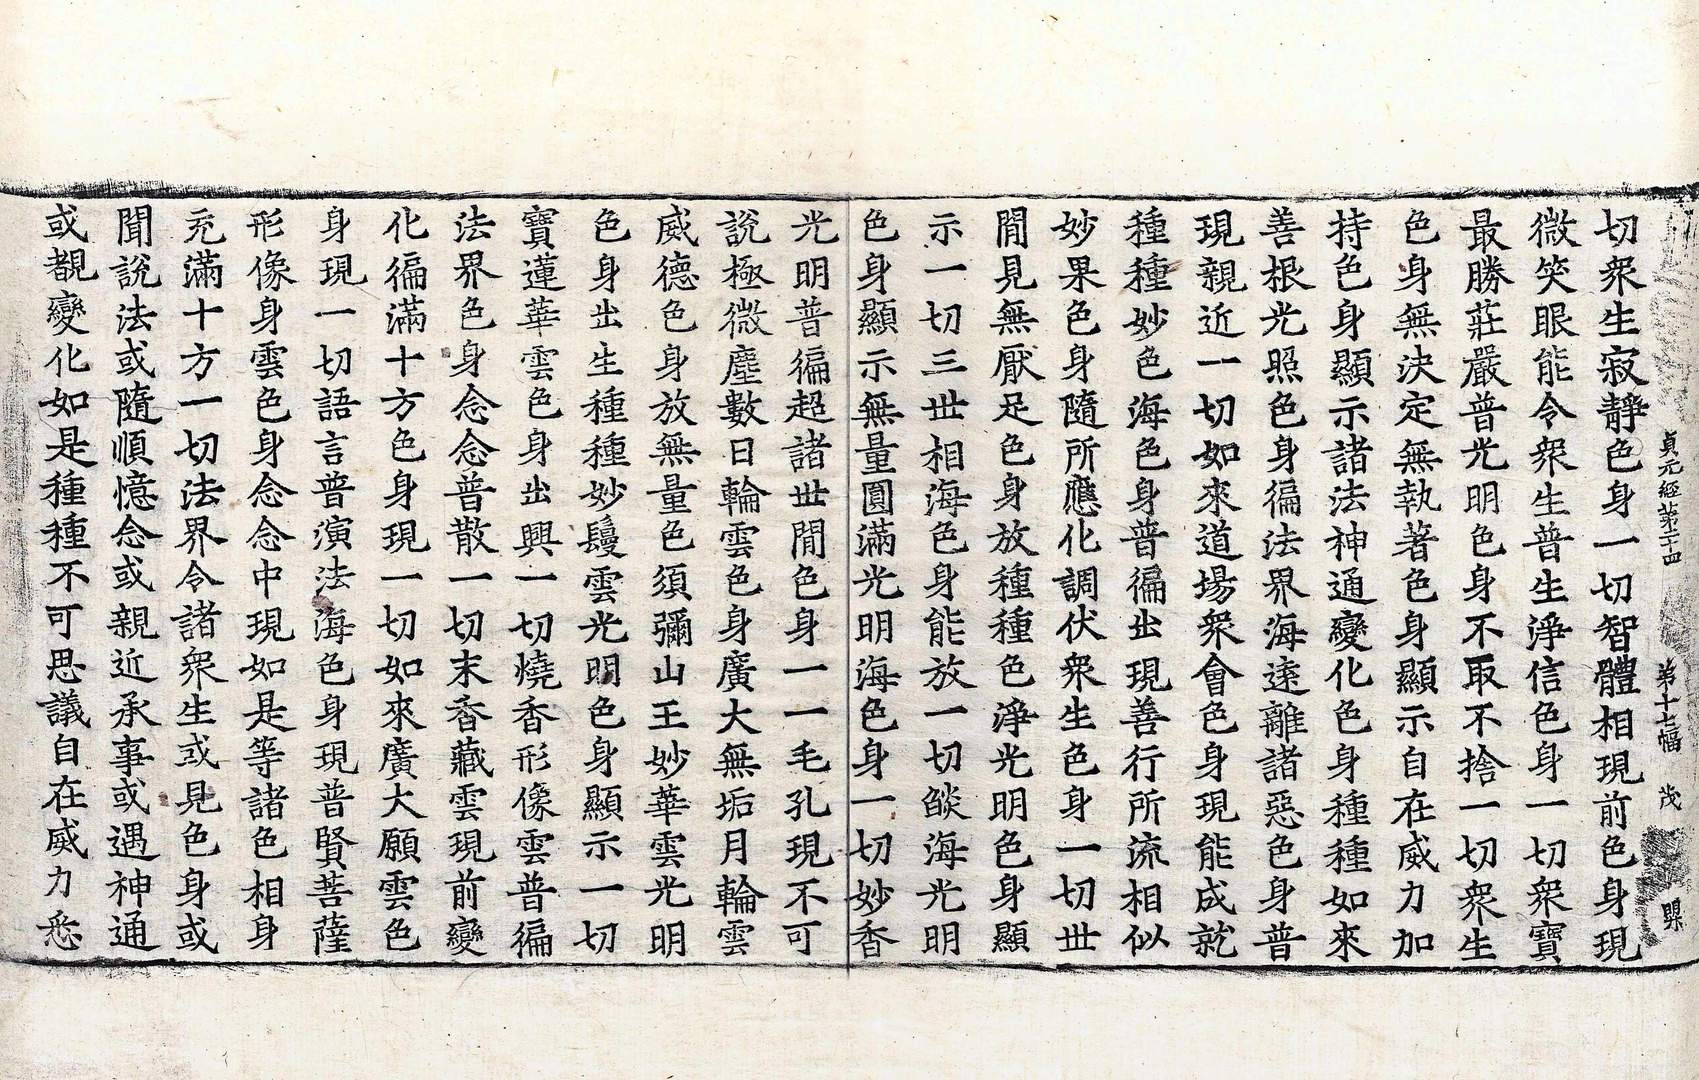 貞元經第二十四 第十七幅 茂 㬎
切衆生寂靜色身一切智體相現前色身現
微笑眼能令衆生普生淨信色身一切衆寶
最勝莊嚴普光明色身不取不捨一切衆生
色身無決定無執著色身顯示自在威力加
持色身顯示諸法神通變化色身種種如來
善根光照色身徧法界海遠離諸惡色身普
現親近一切如來道場衆會色身現能成就
種種妙色海色身普徧出現善行所流相似
妙果色身隨所應化調伏衆生色身一切世
間見無厭足色身放種種色淨光明色身顯
示一切三世相海色身能放一切燄海光明
色身顯示無量圓滿光明海色身一切妙香
光明普徧超諸世間色身一一毛孔現不可
說極微塵數日輪雲色身廣大無垢月輪雲
威德色身放無量色須彌山王妙華雲光明
色身出生種種妙鬘雲光明色身顯示一切
寶蓮華雲色身出興一切燒香形像雲普徧
法界色身念念普散一切末香藏雲現前變
化徧滿十方色身現一切如來廣大願雲色
身現一切語言普演法海色身現普賢菩薩
形像身雲色身念念中現如是等諸色相身
充滿十方一切法界令諸衆生或見色身或
聞說法或隨順憶念或親近承事或遇神通
或覩變化如是種種不可思議自在威力悉